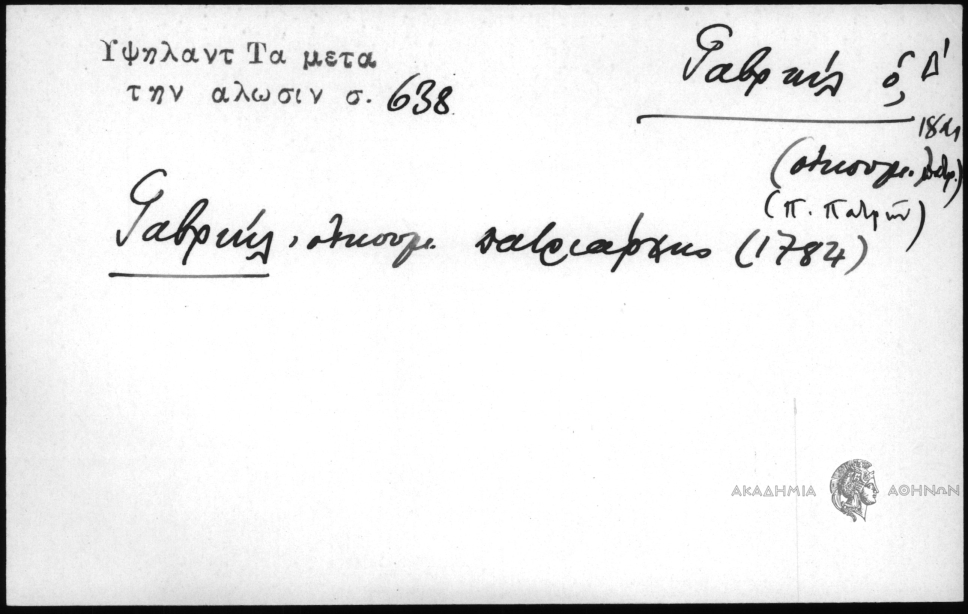 Υψηλαντ Τα μετα
την αλωσιν σ. 638
Γαβριήλ ὁ Δ'
(οικουμ. πατρ.)
(π. Πατρῶν)
Γαβριήλ, οικουμ. πατριάρχης (1784)
ΑΚΑΔΗΜΙΑ ΑΘΗΝΩΝ